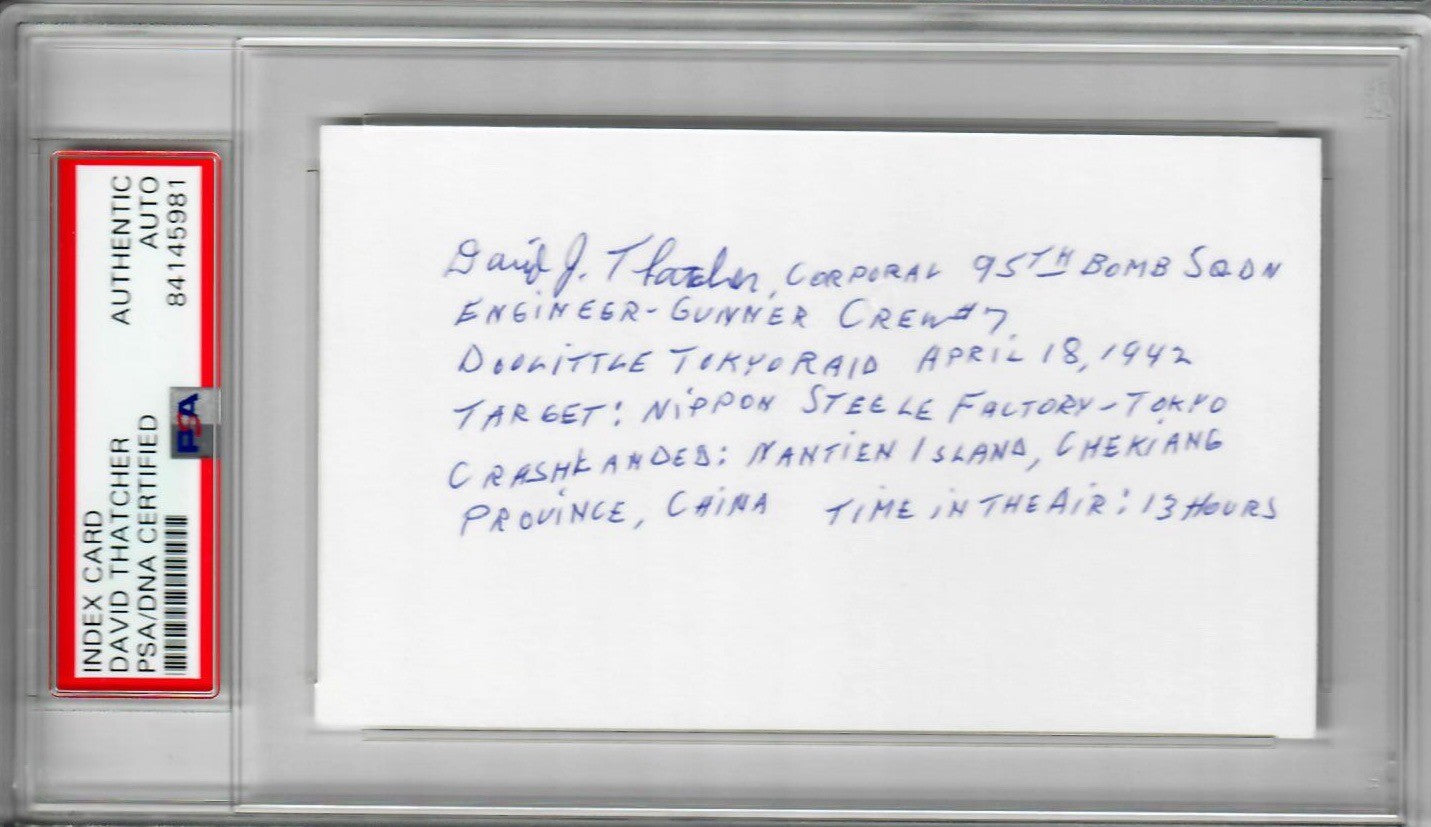 INDEX CARD
DAVID THATCHER
PSA/DNA CERTIFIED
AUTHENTIC
AUTO
84145981
PSA
David J. Thatcher, CORPORAL 95TH BOMB SQDN
ENGINEER-GUNNER CREW #7
DOOLITTLE TOKYO RAID APRIL 18, 1942
TARGET: NIPPON STEELE FACTORY-TOKYO
CRASHLANDED: NANTIEN ISLAND, CHEKIANG
PROVINCE, CHINA TIME IN THE AIR: 13 HOURS